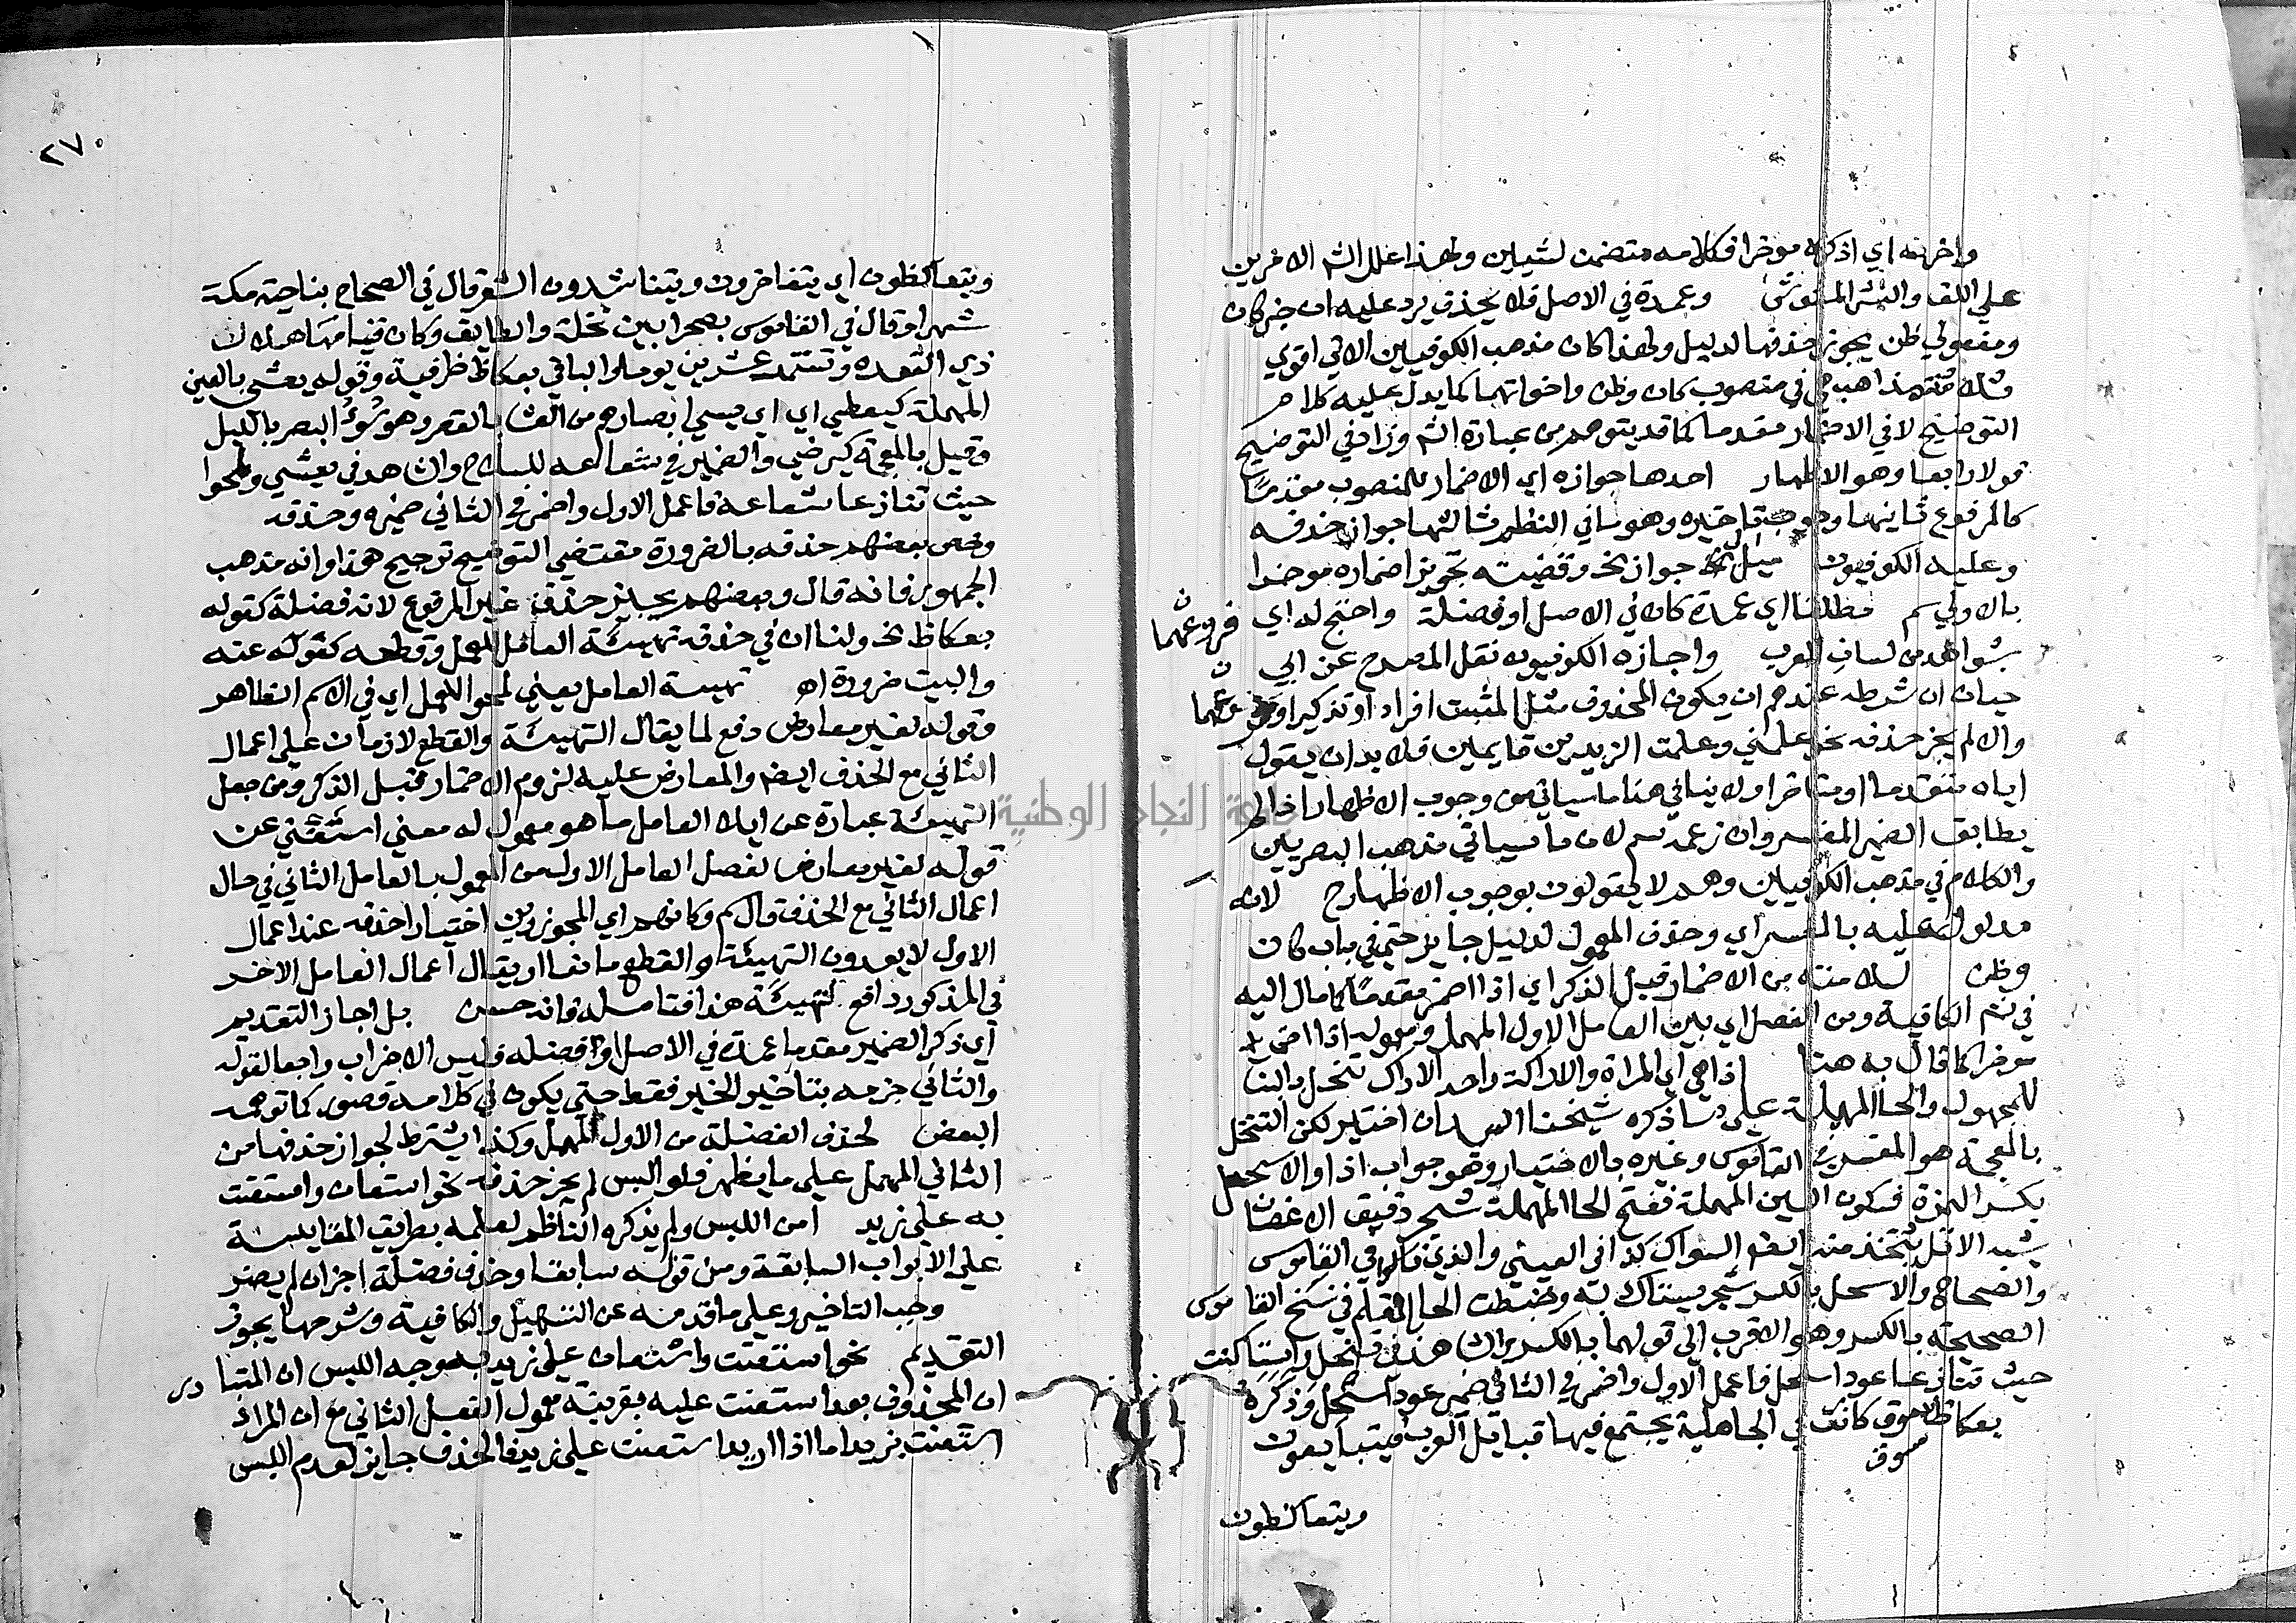 واخرنه اي اذكره موخرا فكلامه متضمن لشيين ولهذا علل الش الامرين
علي اللف والنشر المشوش وعمدة في الاصل فلا يحذف يرد عليه ان خبر كان
ومفعولي ظن يجوز حذفها لدليل ولهذا كان مذهب الكوفيين الاتي اقوي
مذاهب في منصوب كان وظن واخواتهما كما يدل عليه كلام
التوضيح لا في الاضمار مقدما كما قد يتوهم من عبارة الش وزاد في التوضيح
قولا رابعا وهو الاظهار احدها جوازه اي الاضمار للمنصوب مقدما
كالمرفوع ثانيها وجوب تاخيره وهو ما في النظم ثالثها جواز حذفه
وعليه الكوفيون جواز الخ وقضيته تجويز اضماره موخرا
بالاولي سم مطلقا اي عمدة كان في الاصل او فضلة واحتج له اي
بشواهد من لسان العرب واجازه الكوفيون نقل المصرح عن ابي
حيان ان شرطه عندهم ان يكون المحذوف مثل المثبت افرادا وتذكيرا او
والا لم يجز حذفه نحو علمني وعلمت الزيدين قايمين فلا بد ان يقول
اياه متقدما او متاخرا ولا ينافي هذا ما سياتي من وجوب الاظهار اذا لم
يطابق الضمير المفسر وان زعمه سم لان ما سياتي مذهب البصريين
والكلام في مذهب الكوفيين وهم لا يقولون بوجوب الاظهار ح لانه
مدلول عليه بالمفسر اي وحذف المعمول لدليل جايز حتي في باب كان
وظن من الاضمار قبل الذكر اي اذا اضمر مقدما كما مال اليه
في ش الكافية ومن الفصل اي بين العامل الاول المهمل ومعموله اذا اضمر
موخرا كما قال به هنا اذا هي اي المراة والاراكة واحد الاراك تنخل بالبنا
للمجهول والحا المهملة علي ما ذكره شيخنا السيد ان اختير لكن التنخل
بالمعجمة هو المفسر في القاموس وغيره بالاختيار وهو جواب اذا والاسحل
بكسر الهمزة فسكون السين المهملة ففتح الحا المهملة شجر دقيق الاغصان
شبه الاثل يتخذ منه ايضا السواك كذا في العيني والذي في القاموس
والصحاح والاسحل بالكسر شجر يستاك به وضبطت الحا بالقلم في نسخ القاموس
الصحيحة بالكسر وهو الاقرب الي قولهما بالكسر والشاهد في تنخل واستاكت
حيث تنازعا عود اسحل فاعمل الاول واضمر في الثاني ضمير عود اسحل وذكره
بعكاظ سوق كانت في الجاهلية يجتمع فيها قبايل العرب فيتبايعون
سوق
ويتعاكظون
٢٧٠
ويتعاكظون اي يتفاخرون ويتناشدون الشعر قال في الصحاح بناحية مكة
شهرا وقال في القاموس بصحرا بين نخلة والطايف وكان قيامها هلال
ذي القعدة وتستمر عشرين يوما والبا في بعكاظ ظرفية وقوله يعشي بالعين
المهملة كيعطي اي يسي ابصارهم من العشا بالقصر وهو سوء البصر بالليل
وقيل بالمعجمة كيرضي والضمير في شعاعه للسلاح والشاهد في يعشي ولمحوا
حيث تنازعا شعاعه فاعمل الاول واضمر في الثاني ضميره وحذفه
وخص بعضهم حذفه بالضرورة مقتضي التوضيح ترجيح هذا وانه مذهب
الجمهور فانه قال وبعضهم يجيز حذف غير المرفوع لانه فضلة كقوله
بعكاظ الخ ولنا ان في حذفه تهيئة العامل للعمل وقطعه كقوله عنه
والبيت ضرورة اه تهيئة العامل يعني لمحوا للعمل اي في الاسم الظاهر
وقوله لغير معارض دفع لما يقال التهيئة والقطع لازمان علي اعمال
الثاني مع الحذف ايضا والمعارض عليه لزوم الاضمار قبل الذكر ومن جعل
التهيئة عبارة عن ايلاء العامل ما هو معمول له معني استغني عن
قوله لغير معارض لفصل العامل الاول من المعمول بالعامل الثاني في حال
اعمال الثاني مع الحذف قال سم وكانهم اي المجوزين اختيارا حذفه عند اعمال
الاول لا يعدون التهيئة والقطع مانعا او يقال اعمال العامل الاخر
في المذكور دافع لتهيئة هذا فتامله فانه حسن بل اجاز التقديم
اي ذكر الضمير مقدما عمدة في الاصل او فضلة فليس الاضراب راجعا لقوله
والثاني جزمه بتاخير الخبر فقط حتي يكون في كلامه قصور كما توهمه
البعض لحذف الفضلة من الاول المهمل وكذا يشترط لجواز حذفها من
الثاني المهمل علي ما يظهر فلو البس لم يجز حذفه نحو استعان واستعنت
به علي زيد امن اللبس ولم يذكره الناظم لعلمه بطريق المقايسة
علي الابواب السابقة ومن قوله سابقا وحذف فضلة اجز ان لم يضر
وجب التاخير وعلي ما قدمه عن التسهيل والكافية وشرحها يجوز
التقديم نحو استعنت واستعان علي زيد به وجه اللبس ان المتبادر
ان المحذوف بعد استعنت عليه بقرينة معمول الفعل الثاني مع ان المراد
استعنت بزيد اما اذا اريد استعنت علي زيد فالحذف جايز لعدم اللبس
جامعة النجاح الوطنية